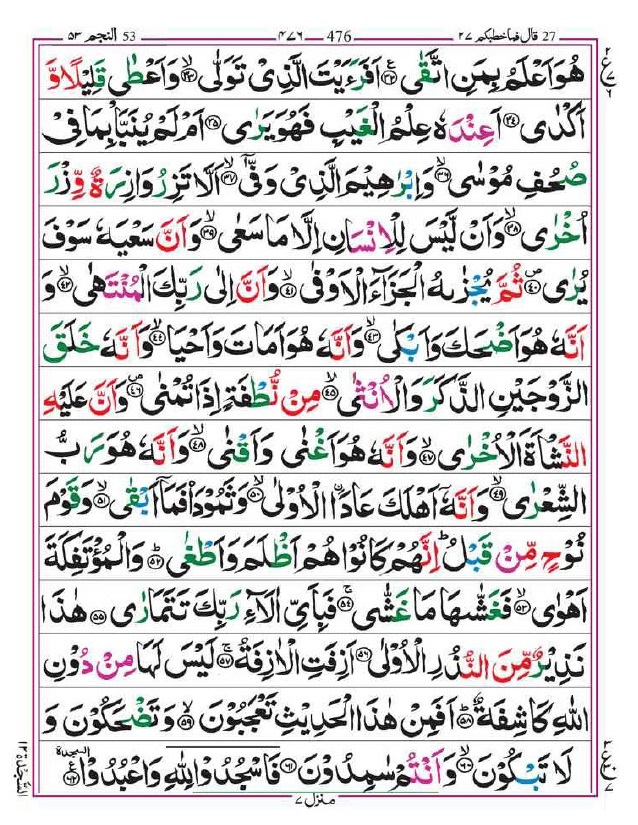 27 قال فما خطبكم ٢٧ 476 ٤٧٦ 53 النجم ٥٣
هُوَ اَعْلَمُ بِمَنِ اتَّقٰى ۧ﴿۳۲﴾ اَفَرَءَيْتَ الَّذِىْ تَوَلّٰى ۙ﴿۳۳﴾ وَاَعْطٰى قَلِيْلًا وَّ
اَكْدٰى ﴿۳۴﴾ اَعِنْدَهٗ عِلْمُ الْغَيْبِ فَهُوَ يَرٰى ﴿۳۵﴾ اَمْ لَمْ يُنَبَّاْ بِمَا فِىْ
صُحُفِ مُوْسٰى ۙ﴿۳۶﴾ وَاِبْرٰهِيْمَ الَّذِىْ وَفّٰٓى ۙ﴿۳۷﴾ اَلَّا تَزِرُ وَازِرَةٌ وِّزْرَ
اُخْرٰى ۙ﴿۳۸﴾ وَاَنْ لَّيْسَ لِلْاِنْسَانِ اِلَّا مَا سَعٰى ۙ﴿۳۹﴾ وَاَنَّ سَعْيَهٗ سَوْفَ
يُرٰى ۪﴿۴۰﴾ ثُمَّ يُجْزٰىهُ الْجَزَآءَ الْاَوْفٰى ۙ﴿۴۱﴾ وَاَنَّ اِلٰى رَبِّكَ الْمُنْتَهٰى ۙ﴿۴۲﴾ وَ
اَنَّهٗ هُوَ اَضْحَكَ وَاَبْكٰى ۙ﴿۴۳﴾ وَاَنَّهٗ هُوَ اَمَاتَ وَاَحْيَا ۙ﴿۴۴﴾ وَاَنَّهٗ خَلَقَ
الزَّوْجَيْنِ الذَّكَرَ وَالْاُنْثٰى ۙ﴿۴۵﴾ مِنْ نُّطْفَةٍ اِذَا تُمْنٰى ۪﴿۴۶﴾ وَاَنَّ عَلَيْهِ
النَّشْاَةَ الْاُخْرٰى ۙ﴿۴۷﴾ وَاَنَّهٗ هُوَ اَغْنٰى وَاَقْنٰى ۙ﴿۴۸﴾ وَاَنَّهٗ هُوَ رَبُّ
الشِّعْرٰى ۙ﴿۴۹﴾ وَاَنَّهٗٓ اَهْلَكَ عَادَا۟ اۨلْاُوْلٰى ۙ﴿۵۰﴾ وَثَمُوْدَا۟ فَمَاۤ اَبْقٰى ۙ﴿۵۱﴾ وَقَوْمَ
نُوْحٍ مِّنْ قَبْلُ ؕ اِنَّهُمْ كَانُوْا هُمْ اَظْلَمَ وَاَطْغٰى ؕ﴿۵۲﴾ وَالْمُؤْتَفِكَةَ
اَهْوٰى ۙ﴿۵۳﴾ فَغَشّٰىهَا مَا غَشّٰى ۚ﴿۵۴﴾ فَبِاَىِّ اٰلَآءِ رَبِّكَ تَتَمَارٰى ﴿۵۵﴾ هٰذَا
نَذِيْرٌ مِّنَ النُّذُرِ الْاُوْلٰى ﴿۵۶﴾ اَزِفَتِ الْاٰزِفَةُ ۚ﴿۵۷﴾ لَيْسَ لَهَا مِنْ دُوْنِ
اللّٰهِ كَاشِفَةٌ ؕ﴿۵۸﴾ اَفَمِنْ هٰذَا الْحَدِيْثِ تَعْجَبُوْنَ ۙ﴿۵۹﴾ وَتَضْحَكُوْنَ وَ
لَا تَبْكُوْنَ ۙ﴿۶۰﴾ وَاَنْتُمْ سٰمِدُوْنَ ﴿۶۱﴾ فَاسْجُدُوْا لِلّٰهِ وَاعْبُدُوْا ۩﴿۶۲﴾ السجدة
منزل ٧
السجدة ١٢